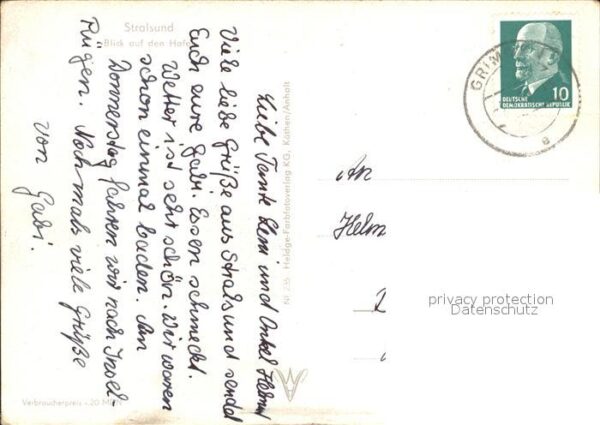 Stralsund
Blick auf den Hafen
Liebe Tante Leni und Onkel Helmut
Viele liebe Grüße aus Stralsund sendet
Euch eure Gabi. Essen schmeckt.
Wetter ist sehr schön. Wir waren
schon einmal baden. Am
Donnerstag fahren wir nach Insel
Rügen. Nochmals viele Grüße
von Gabi.
Nr 235 Heldge-Farbfotoverlag KG, Köthen/Anhalt
Verbraucherpreis -.20 MDN
GRIMM
DEUTSCHE
DEMOKRATISCHE REPUBLIK
10
An
Helm
privacy protection
Datenschutz